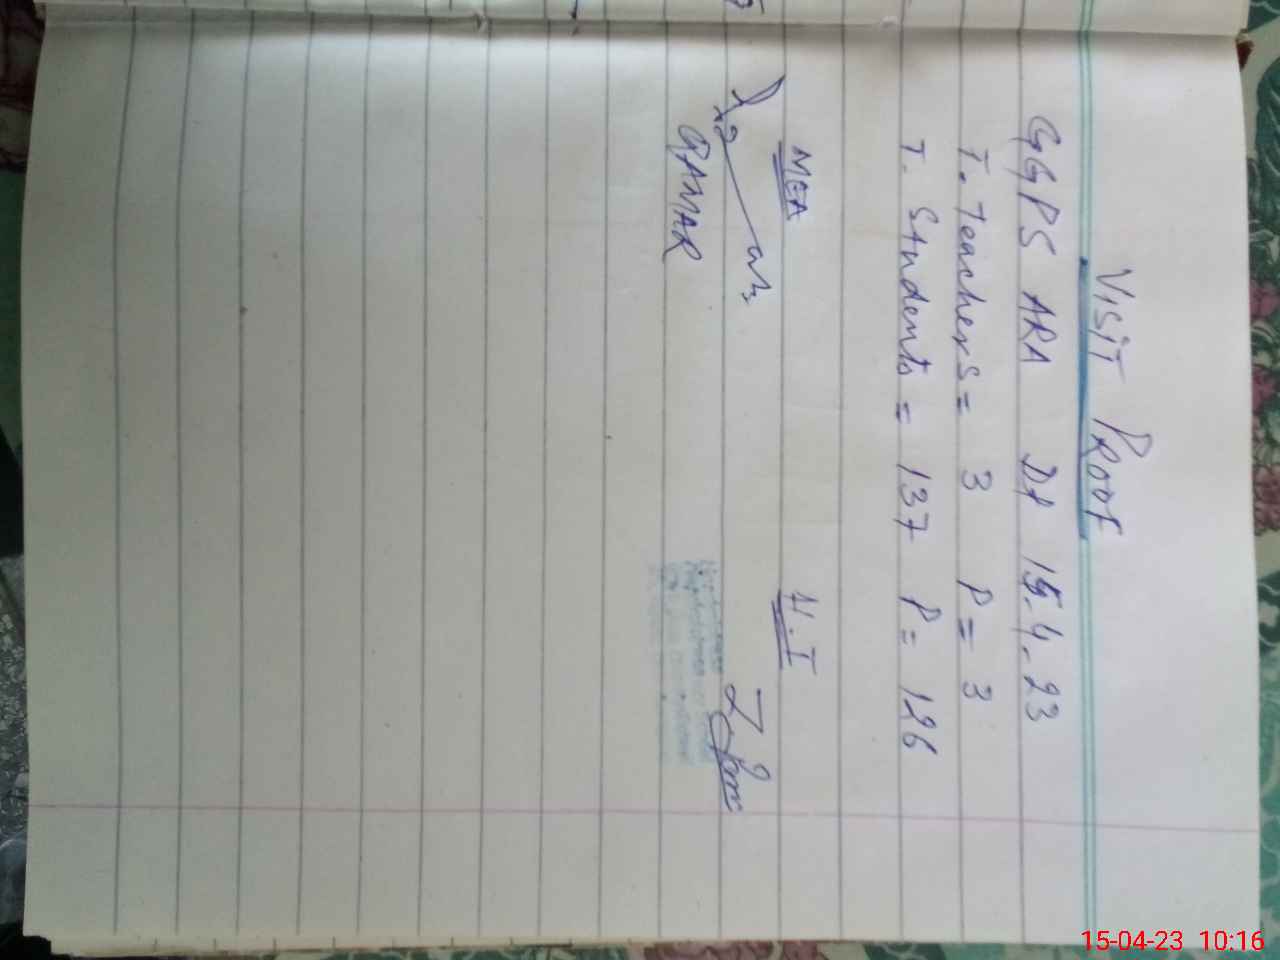 VISIT PROOF
GGPS ARA Dt 15.4.23
T. Teachers = 3 P = 3
T. Students = 137 P = 126
MEA H.I
QAMAR
15-04-23 10:16